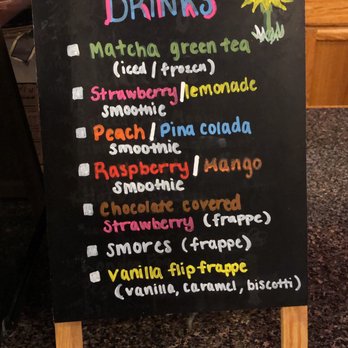 DRINKS
Matcha green tea
(iced / frozen)
Strawberry/lemonade
smoothie
Peach / Pina colada
smoothie
Raspberry / Mango
smoothie
Chocolate covered
Strawberry (frappe)
smores (frappe)
Vanilla flip-frappe
(vanilla, caramel, biscotti)